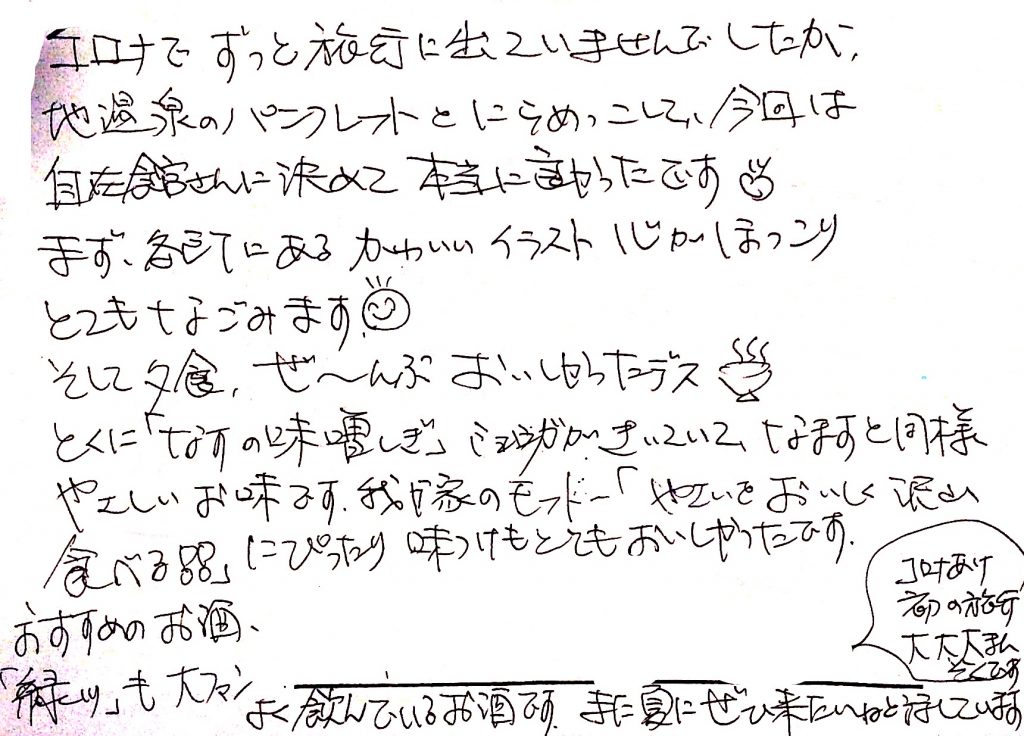 コロナでずっと旅行に出ていませんでしたが、
地温泉のパンフレットとにらめっこして、今回は
自在館さんに決めて本当に良かったです
まず、各部屋にあるかわいいイラスト ほっこり
とてもなごみます。
そして夕食、ぜ〜んぶおいしかったデス
とくに「なすの味噌しぎ」ショウガがきいていて、なますと同様
やさしいお味です。我が家のモットー「やさいをおいしく沢山
食べる」にぴったり 味つけもとてもおいしかったです。
おすすめのお酒、
「緑川」も大ファン
よく飲んでいるお酒です。また夏にぜひ来たいねと話しています
コロナあけ
初の旅行
大大大まん
ぞくです